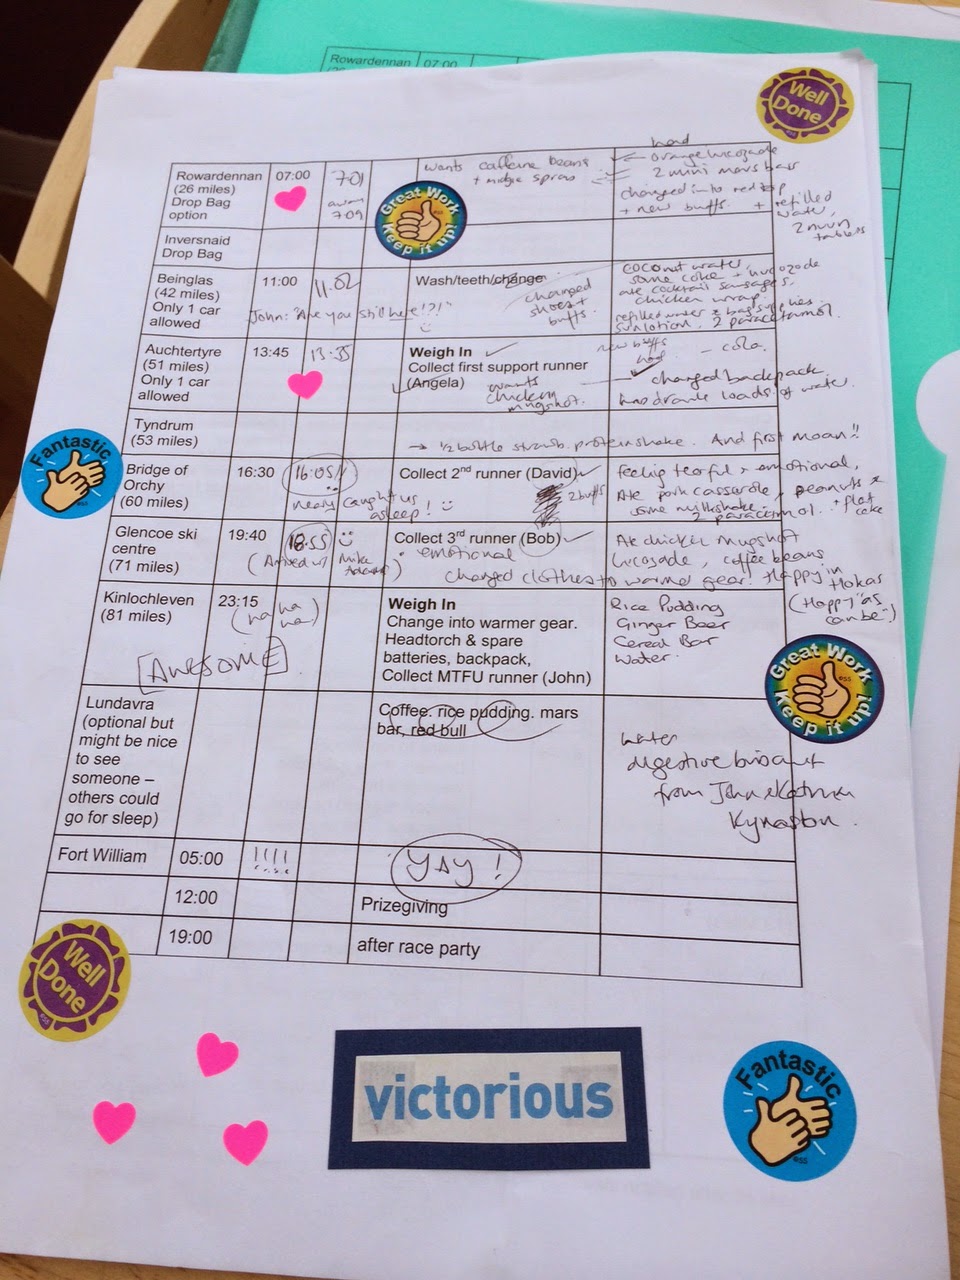 Rowardennan 07:00
Well Done
Rowardennan 07:00 7.01 wants caffeine beans had
(26 miles) + midge spray orange lucozade
Drop Bag 7.09 2 mini mars bars
option changed into red top
+ new buffs. + refilled
water,
2 nuun
tablets
Great Work
Keep it up!
Inversnaid
Drop Bag
Beinglas 11:00 11.02 Wash/teeth/change coconut water,
(42 miles) changed some coke + lucozade
Only 1 car shoes + ate cocktail sausages,
allowed buffs. chicken wrap.
John: "Are you still here!?!" refilled water & bag supplies
sunlotion. 2 paracetamol.
Auchtertyre 13:45 13.35 Weigh In new buffs
(51 miles) Collect first support runner had - cola.
Only 1 car (Angela) changed backpack
allowed wants drank loads of water.
chicken
mugshot.
Tyndrum
(53 miles) → 1/2 bottle strawb. protein shake. And first moan!!
Fantastic
Bridge of 16:30 16:05!! Collect 2nd runner (David) feeling tearful & emotional,
Orchy nearly caught us 2 buffs Ate pork casserole, peanuts &
(60 miles) asleep! some milkshake. + flat coke
2 paracetamol.
Glencoe ski 19:40 18.55 Collect 3rd runner (Bob) Ate chicken mugshot
centre (Arrived w/ Mike) emotional lucozade, coffee beans
(71 miles) changed clothes to warmer gear! Happy in
Hokas
(Happy as
can be)
Kinlochleven 23:15 Weigh In Rice Pudding
(81 miles) (ha ha ha) Change into warmer gear. Ginger Beer
Headtorch & spare Cereal Bar
batteries, backpack, Water.
[AWESOME] Collect MTFU runner (John)
Great Work
Keep it up!
Lundavra Coffee. rice pudding. mars
(optional but bar, red bull
might be nice Water
to see digestive biscuit
someone – from John & Katrina
others could Kynaston.
go for sleep)
Fort William 05:00 !!!! YAY!
12:00 Prizegiving
19:00 after race party
Well Done
victorious
Fantastic